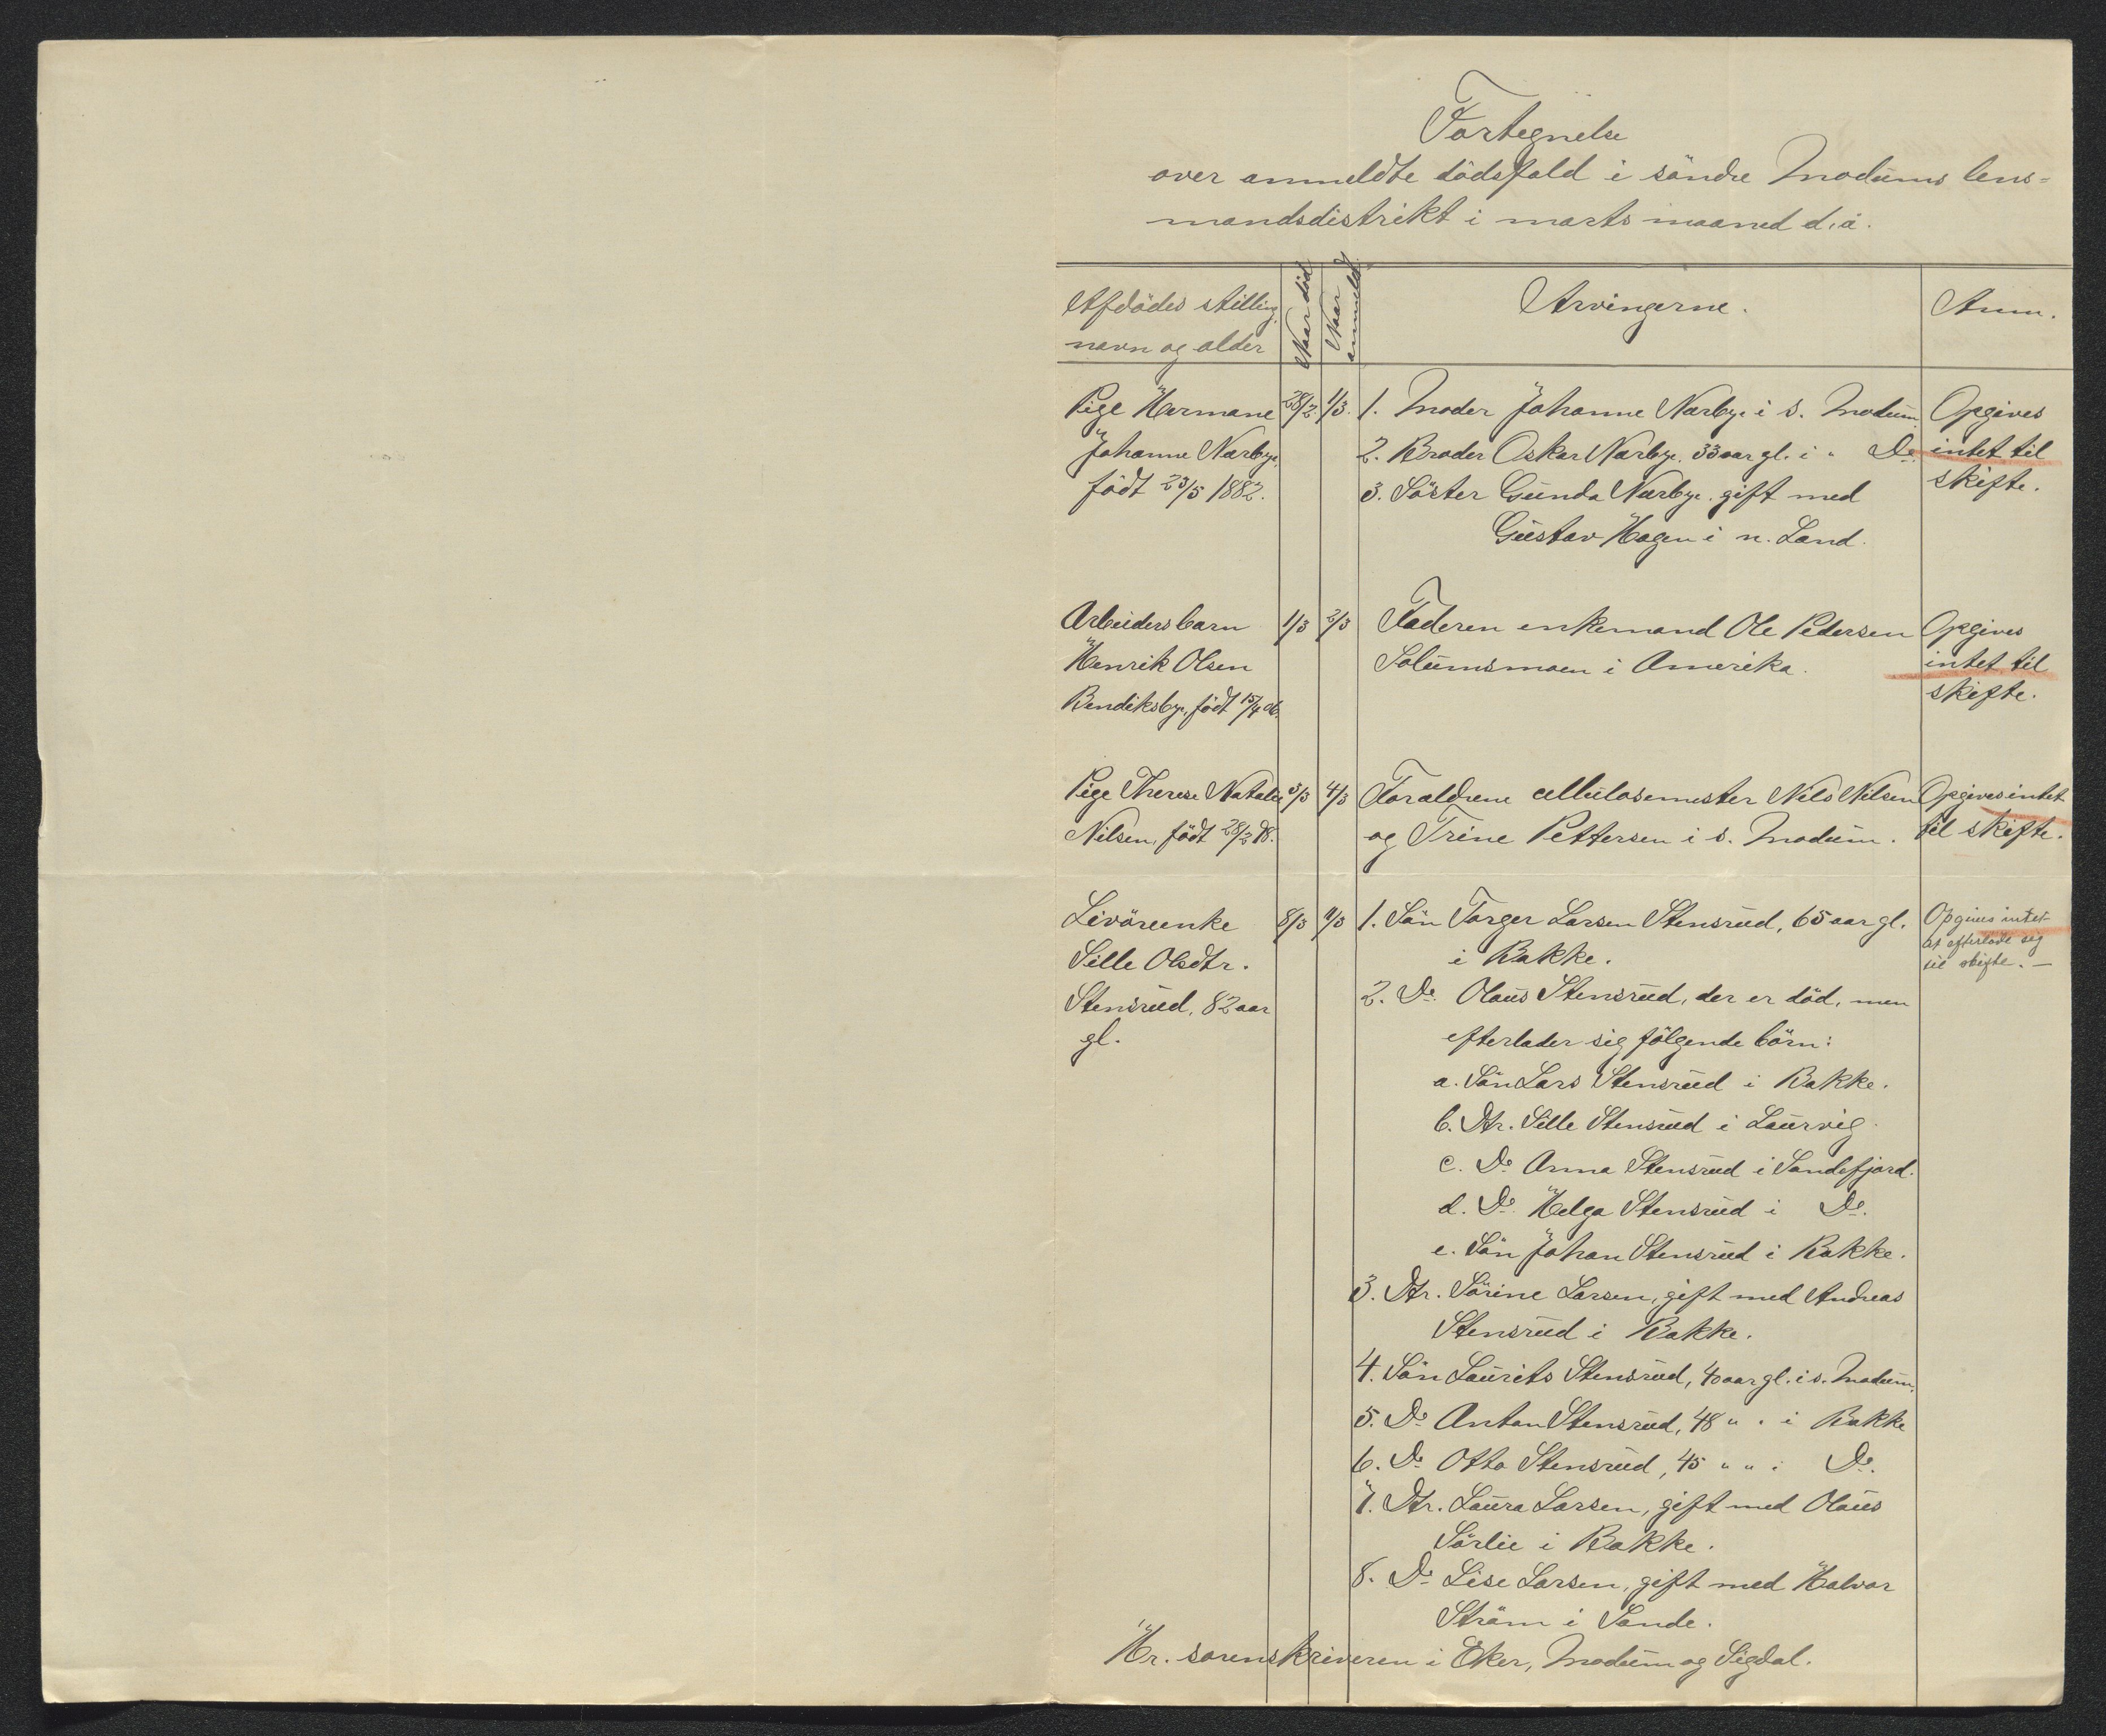 Fortegnelse
over anmeldte dödsfald i söndre Modums lens=
mandsdistrikt i marts maaned d. å.
Afdödes stilling,
navn og alder
Naar död
Naar anmeldt
Arvingerne.
Anm.
Pige Hermane 28/2 1/3. 1. Moder Johanne Nærbye i s. Modum Opgives
Johanne Nærbye, 2. Broder Oskar Nærbye, 33 aar gl. i " Do. intet til
födt 23/5 1882. 3. Söster Gunda Nærbye, gift med skifte.
Gustav Hagen i n. Land.
Arbeidersbarn 1/3 2/3 Faderen enkemand Ole Pedersen Opgives
Henrik Olsen Solumsmoen i Amerika. intet til
Bendiksby, födt 15/4 06. skifte.
Pige Therese Natalie 3/3 4/3 Forældrene cellulosemester Nils Nilsen Opgives intet
Nilsen, födt 28/2 08. og Trine Pettersen i s. Modum. til skifte.
Livöreenke 8/3 11/3 1. Sön Torger Larsen Stensrud, 65 aar gl. Opgives intet
at efterlade sig
Sille Olsdtr. i Bakke. til skifte. —
Stensrud, 82 aar 2. Do. Olaus Stensrud, der er död, men
gl. efterlader sig fölgende börn:
a. Sön Lars Stensrud i Bakke.
b. Dtr. Sille Stensrud i Laurvig.
c. Do. Anna Stensrud i Sandefjord.
d. Do. Helga Stensrud i Do.
e. Sön Johan Stensrud i Bakke.
3. Dtr. Sörine Larsen, gift med Andreas
Stensrud i Bakke.
4. Sön Laurits Stensrud, 40 aar gl. i s. Modum.
5. Do. Anton Stensrud, 48 " " i Bakke
6. Do. Otto Stensrud, 45 " " i Do.
7. Dtr. Laura Larsen, gift med Olaus
Sörlie i Bakke.
8. Do. Lise Larsen, gift med Halvor
Ström i Sande.
Hr. sorenskriveren i Eker, Modum og Sigdal.